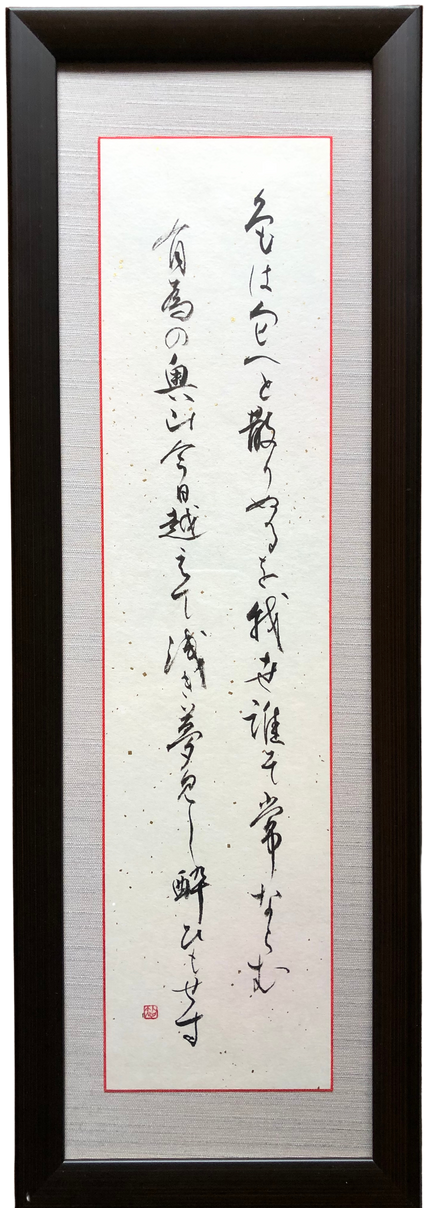 色は匂へと散りぬるを我世誰そ常ならむ
有為の奥山今日越えて浅き夢見し酔ひもせす